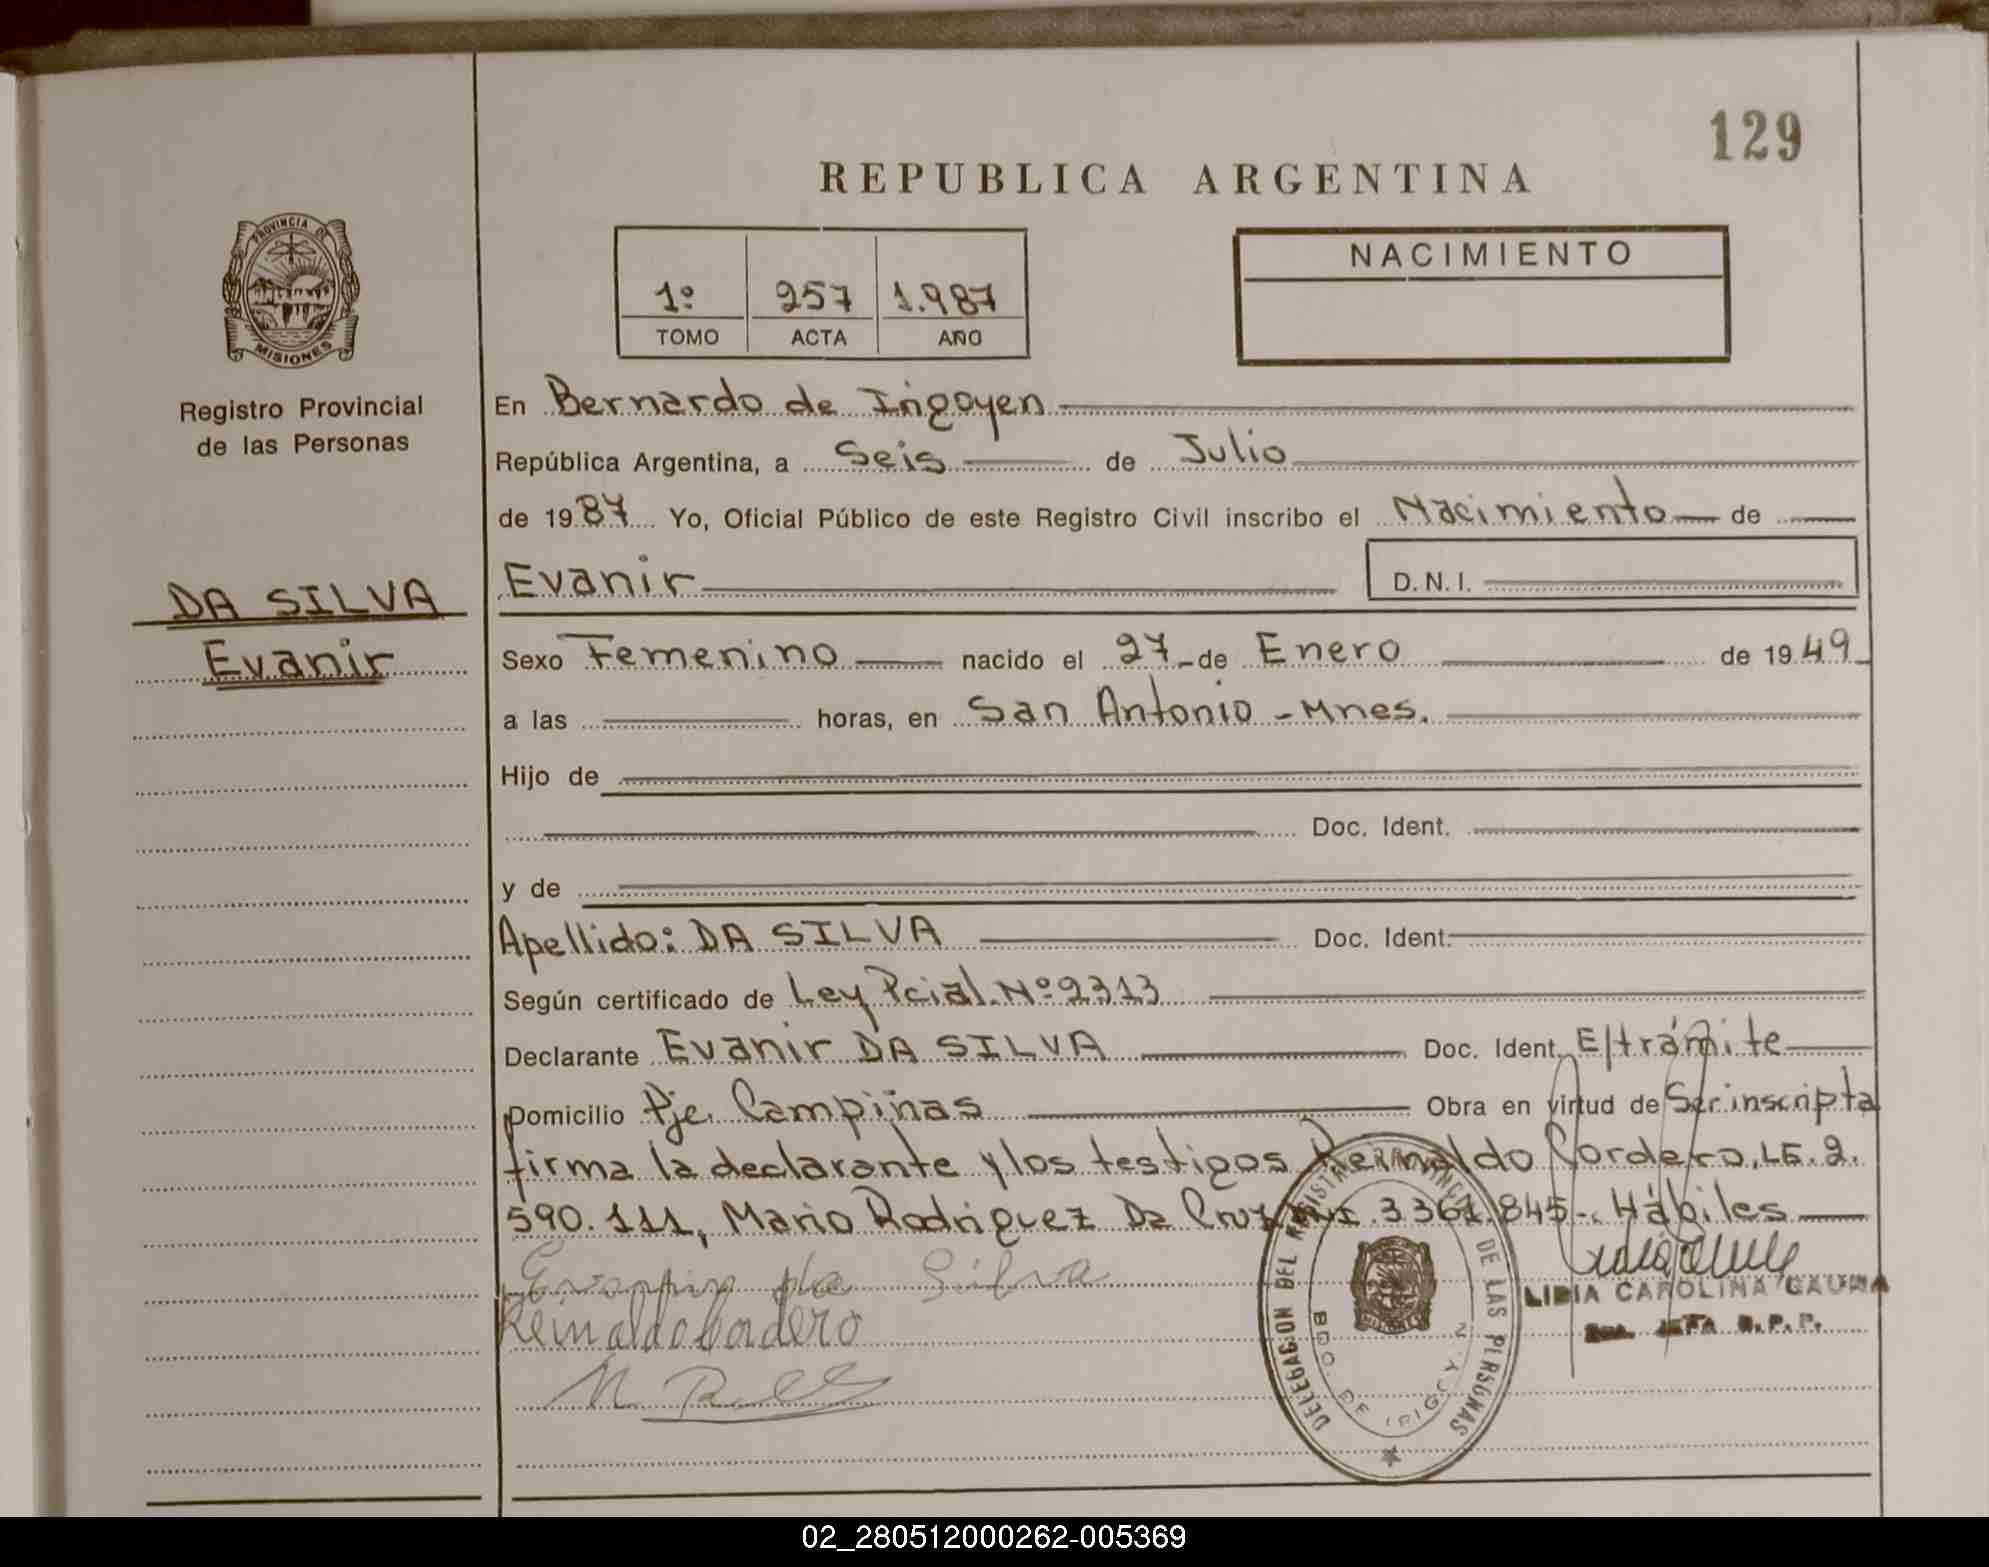 129
REPUBLICA ARGENTINA
PROVINCIA DE
MISIONES
Registro Provincial
de las Personas
1º 257 1.987
TOMO ACTA AÑO
NACIMIENTO
DA SILVA
Evanir
En Bernardo de Irigoyen
República Argentina, a Seis de Julio
de 1987 Yo, Oficial Público de este Registro Civil inscribo el Nacimiento de
Evanir D.N.I.
Sexo Femenino nacido el 27 de Enero de 1949
a las horas, en San Antonio - Mnes.
Hijo de
Doc. Ident.
y de
Apellido: DA SILVA Doc. Ident.
Según certificado de Ley Pcial. Nº 2313
Declarante Evanir DA SILVA Doc. Ident. E/trámite
Domicilio Pje. Campiñas Obra en virtud de Ser inscripta
firma la declarante y los testigos Reinaldo Cordero, LE. 2.
590.111, Mario Rodriguez Da Cruz 3361.845-. Hábiles
Evanir da Silva
Reinaldo Cordero
LIDIA CAROLINA
R.P.P.
DELEGACION DEL REGISTRO PROVINCIAL DE LAS PERSONAS
BDO. DE IRIGOYEN
02_280512000262-005369